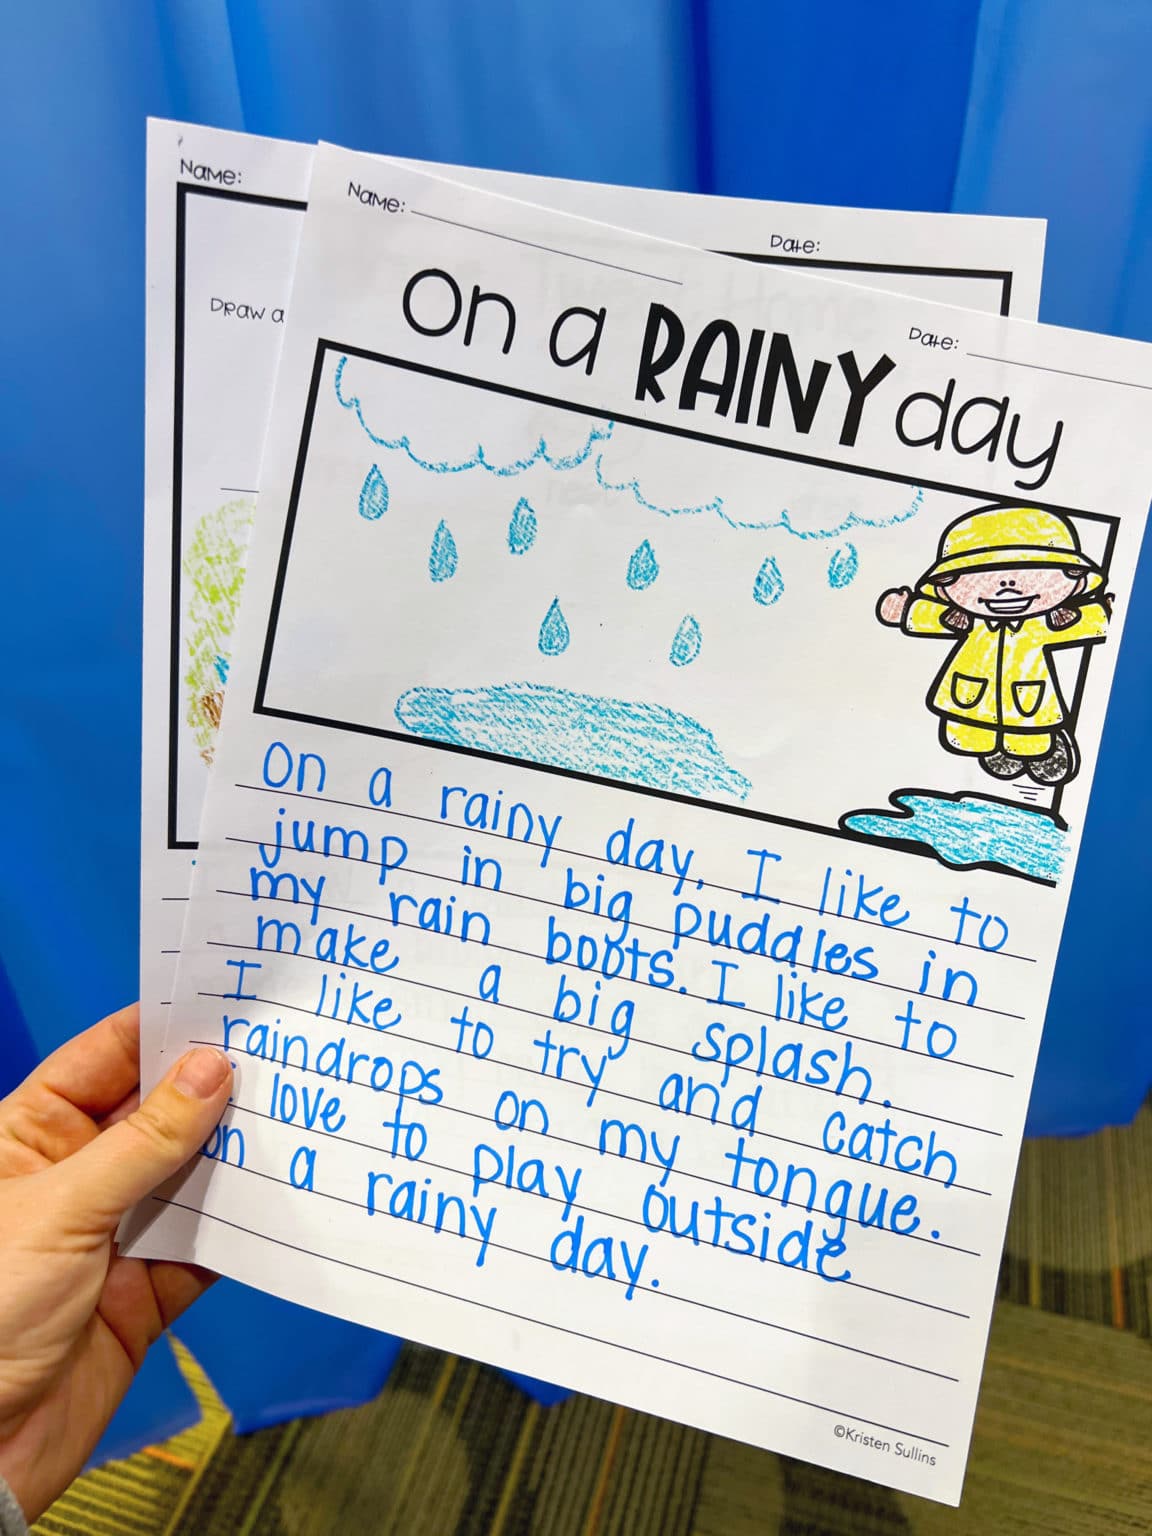 Name:
Date:
Draw a
Name:
Date:
on a RAINY day
on a rainy day, I like to
jump in big puddles in
my rain boots. I like to
make a big splash.
I like to try and catch
raindrops on my tongue.
love to play outside
on a rainy day.
©Kristen Sullins